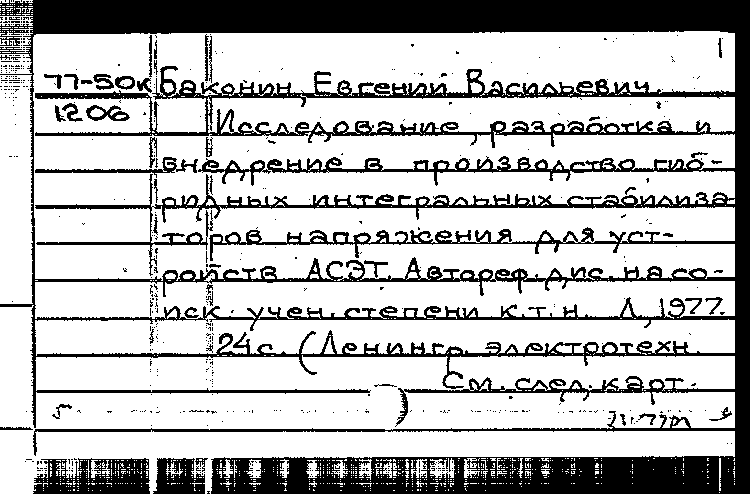 77-50к Баконин, Евгений Васильевич.
1206 Исследование, разработка и
внедрение в производство гиб-
ридных интегральных стабилиза-
торов напряжения для уст-
ройств АСЭТ. Автореф. дис. на со-
иск. учен. степени к.т.н. Л, 1977.
24с. (Ленингр. электротехн.
См. след. карт.